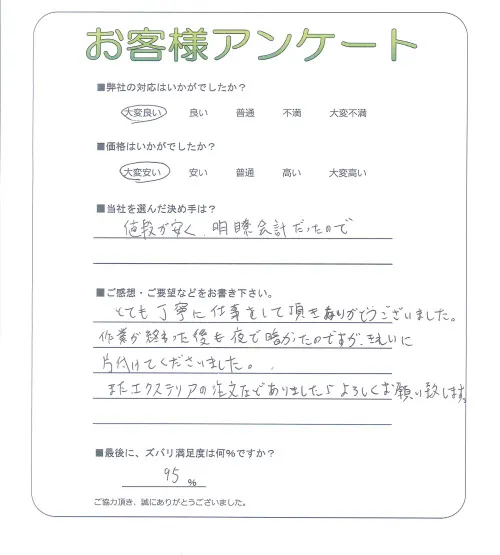 お客様アンケート
■弊社の対応はいかがでしたか？
大変良い 良い 普通 不満 大変不満
■価格はいかがでしたか？
大変安い 安い 普通 高い 大変高い
■当社を選んだ決め手は？
値段が安く、明瞭会計だったので
■ご感想・ご要望などをお書き下さい。
とても丁寧に仕事をして頂きありがとうございました。
作業が終わった後も夜で暗かったのですが、きれいに
片付けてくださいました。
またエクステリアの注文などありましたらよろしくお願い致します。
■最後に、ズバリ満足度は何％ですか？
95 %
ご協力頂き、誠にありがとうございました。